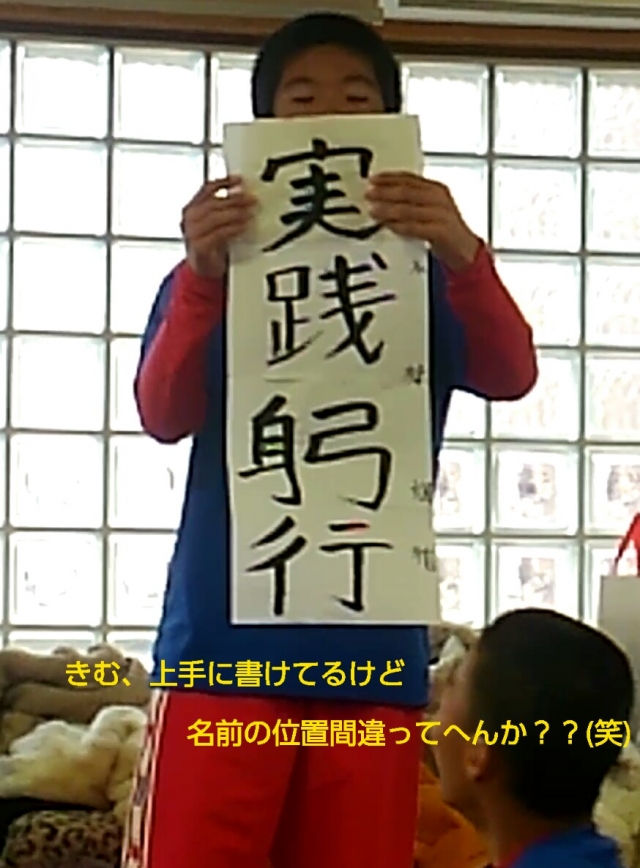 実践躬行
木村
きむ、上手に書けてるけど
名前の位置間違ってへんか？？(笑)